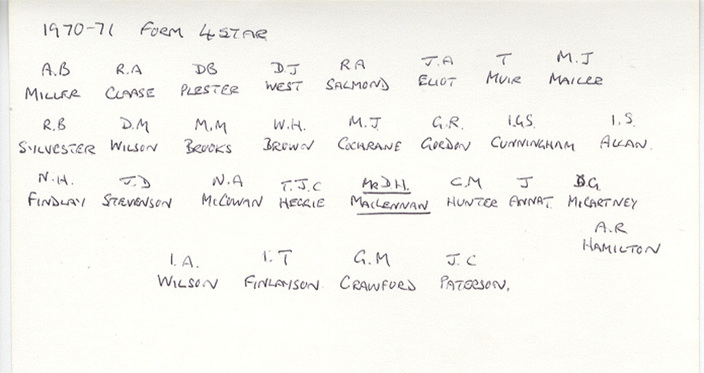 1970-71 FORM 4 STAR
A.B R.A DB D.J R A J.A T M.J
MILLER CLAASE PLESTER WEST SALMOND ELIOT MUIR MAILER
R.B D.M M.M W.H. M.J. G.R. I.G.S. I.S.
SYLVESTER WILSON BROOKS BROWN COCHRANE GORDON CUNNINGHAM ALLAN.
N.H. J.D N.A T.J.C MR D.H. C.M J D.G.
FINDLAY STEVENSON McCOWAN HEGGIE MACLENNAN HUNTER ANNAT. McCARTNEY
A.R
HAMILTON
I.A. I.T G.M J.C
WILSON FINLAYSON CRAWFORD PATERSON.